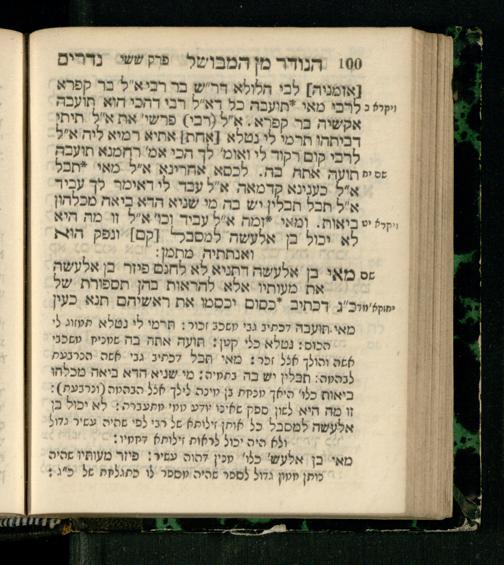 100 הנודר מן המבושל פרק ששי נדרים
[אזמניה] לבי הלולא דר"ש בר רבי א"ל בר קפרא
לרבי מאי *תועבה כל דא"ל רבי דהכי הוא תועבה ויקרא כ
אקשיה בר קפרא. א"ל (רבי) פרשי' את א"ל תיתי
דביתהו תרמי לי נטלא [אחת] אתיא רמיא ליה א"ל
לרבי קום רקוד לי ואומ' לך הכי אמ' רחמנא תועבה
תועה אתה בה. לכסא אחרינא א"ל מאי *תבל שם יח
א"ל כענינא קדמאה א"ל עבד לי דאימר לך עביד
א"ל תבל תבלין יש בה מי שניא הדא ביאה מכלהון
ביאות. ומאי *זמה א"ל עביד וכו' א"ל זו מה היא ויקרא יט
לא יכול בן אלעשה למסבל [קם] ונפק הוא
ואנתתיה מתמן:
מאי בן אלעשה דתניא לא לחנם פיזר בן אלעשה שם
את מעותיו אלא להראות בהן תספורת של
כ"ג דכתיב *כסום יכסמו את ראשיהם תנא כעין יחזקא' מד
מאי תועבה דכתיב גבי משכב זכור: תרמי לי נטלא תמזוג לי
הכוס: נטלא כלי קטן: תועה אתה בה שמניח משכבי
אשה והולך אצל זכר: מאי תבל דכתיב גבי אשה הנרבעת
לבהמה: תבלין יש בה בתמיה: מי שניא הדא ביאה מכלהו
ביאות כלו' היאך מנחת בן מינה לילך אצל הבהמה (ונרבעת):
זו מה היא לשון ספק שאינו יודע ממי מתעברה: לא יכול בן
אלעשה למסבל כל אותן זילותא של רבי לפי שהיה עשיר גדול
ולא היה יכול לראות זילותא דחמיו:
מאי בן אלעש' כלו' מנין דהוה עשיר: פיזר מעותיו שהיה
נותן ממון גדול לספר שהיה מספר לו כתגלחת של כ"ג: